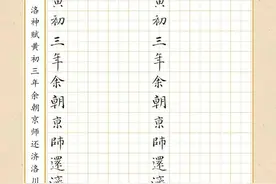 洛神赋黄初三年余朝京师还济洛川
黄初三年余朝京師還濟
黄初三年余朝京師還濟